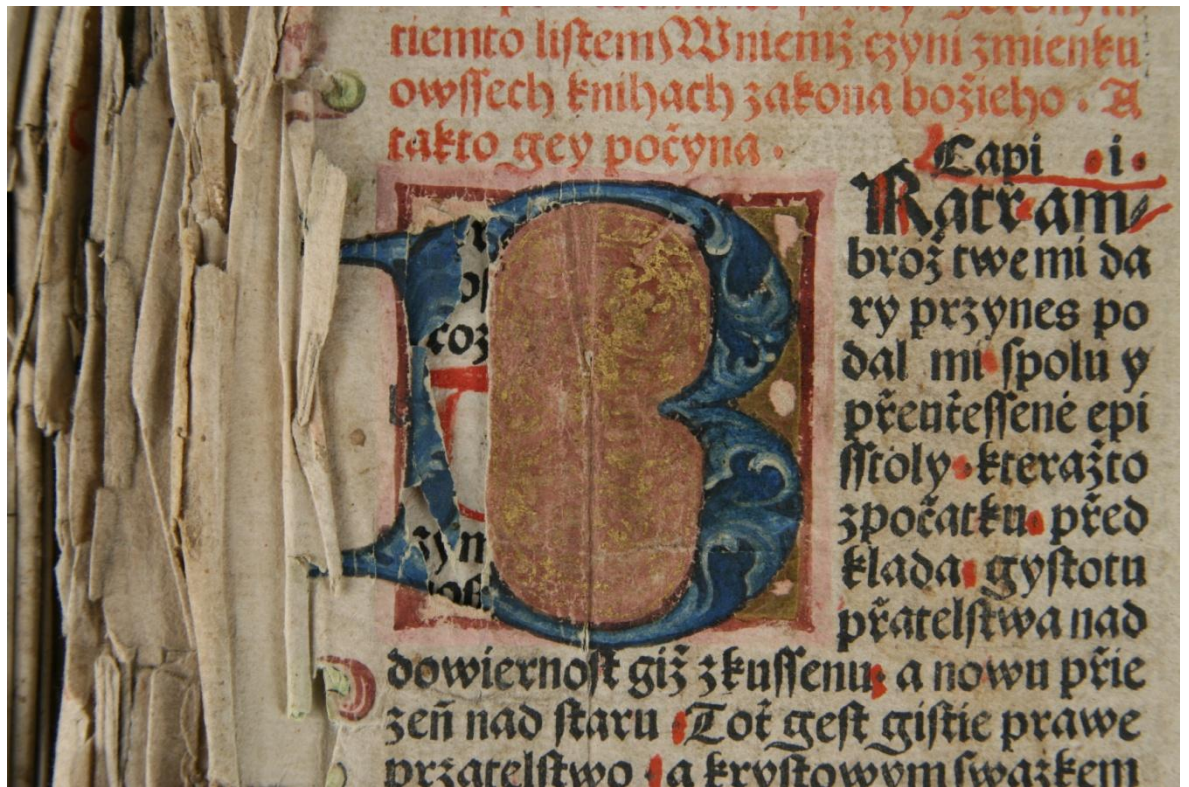 tiemto listem Wniemž czyni zmienku
owssech knihach zakona božieho · A
takto gey počyna ·
Capi · i ·
B
Ratr am
brož twe mi da
ry przynes po
dal mi spolu y
přeutěssené epi
sstoly kteražto
zpočatku před
klada gystotu
přatelstwa nad
dowiernost giž zkussenu a nowu přie
zeň nad staru Toť gest gistie prawe
przatelstwo a krystowym swazkem